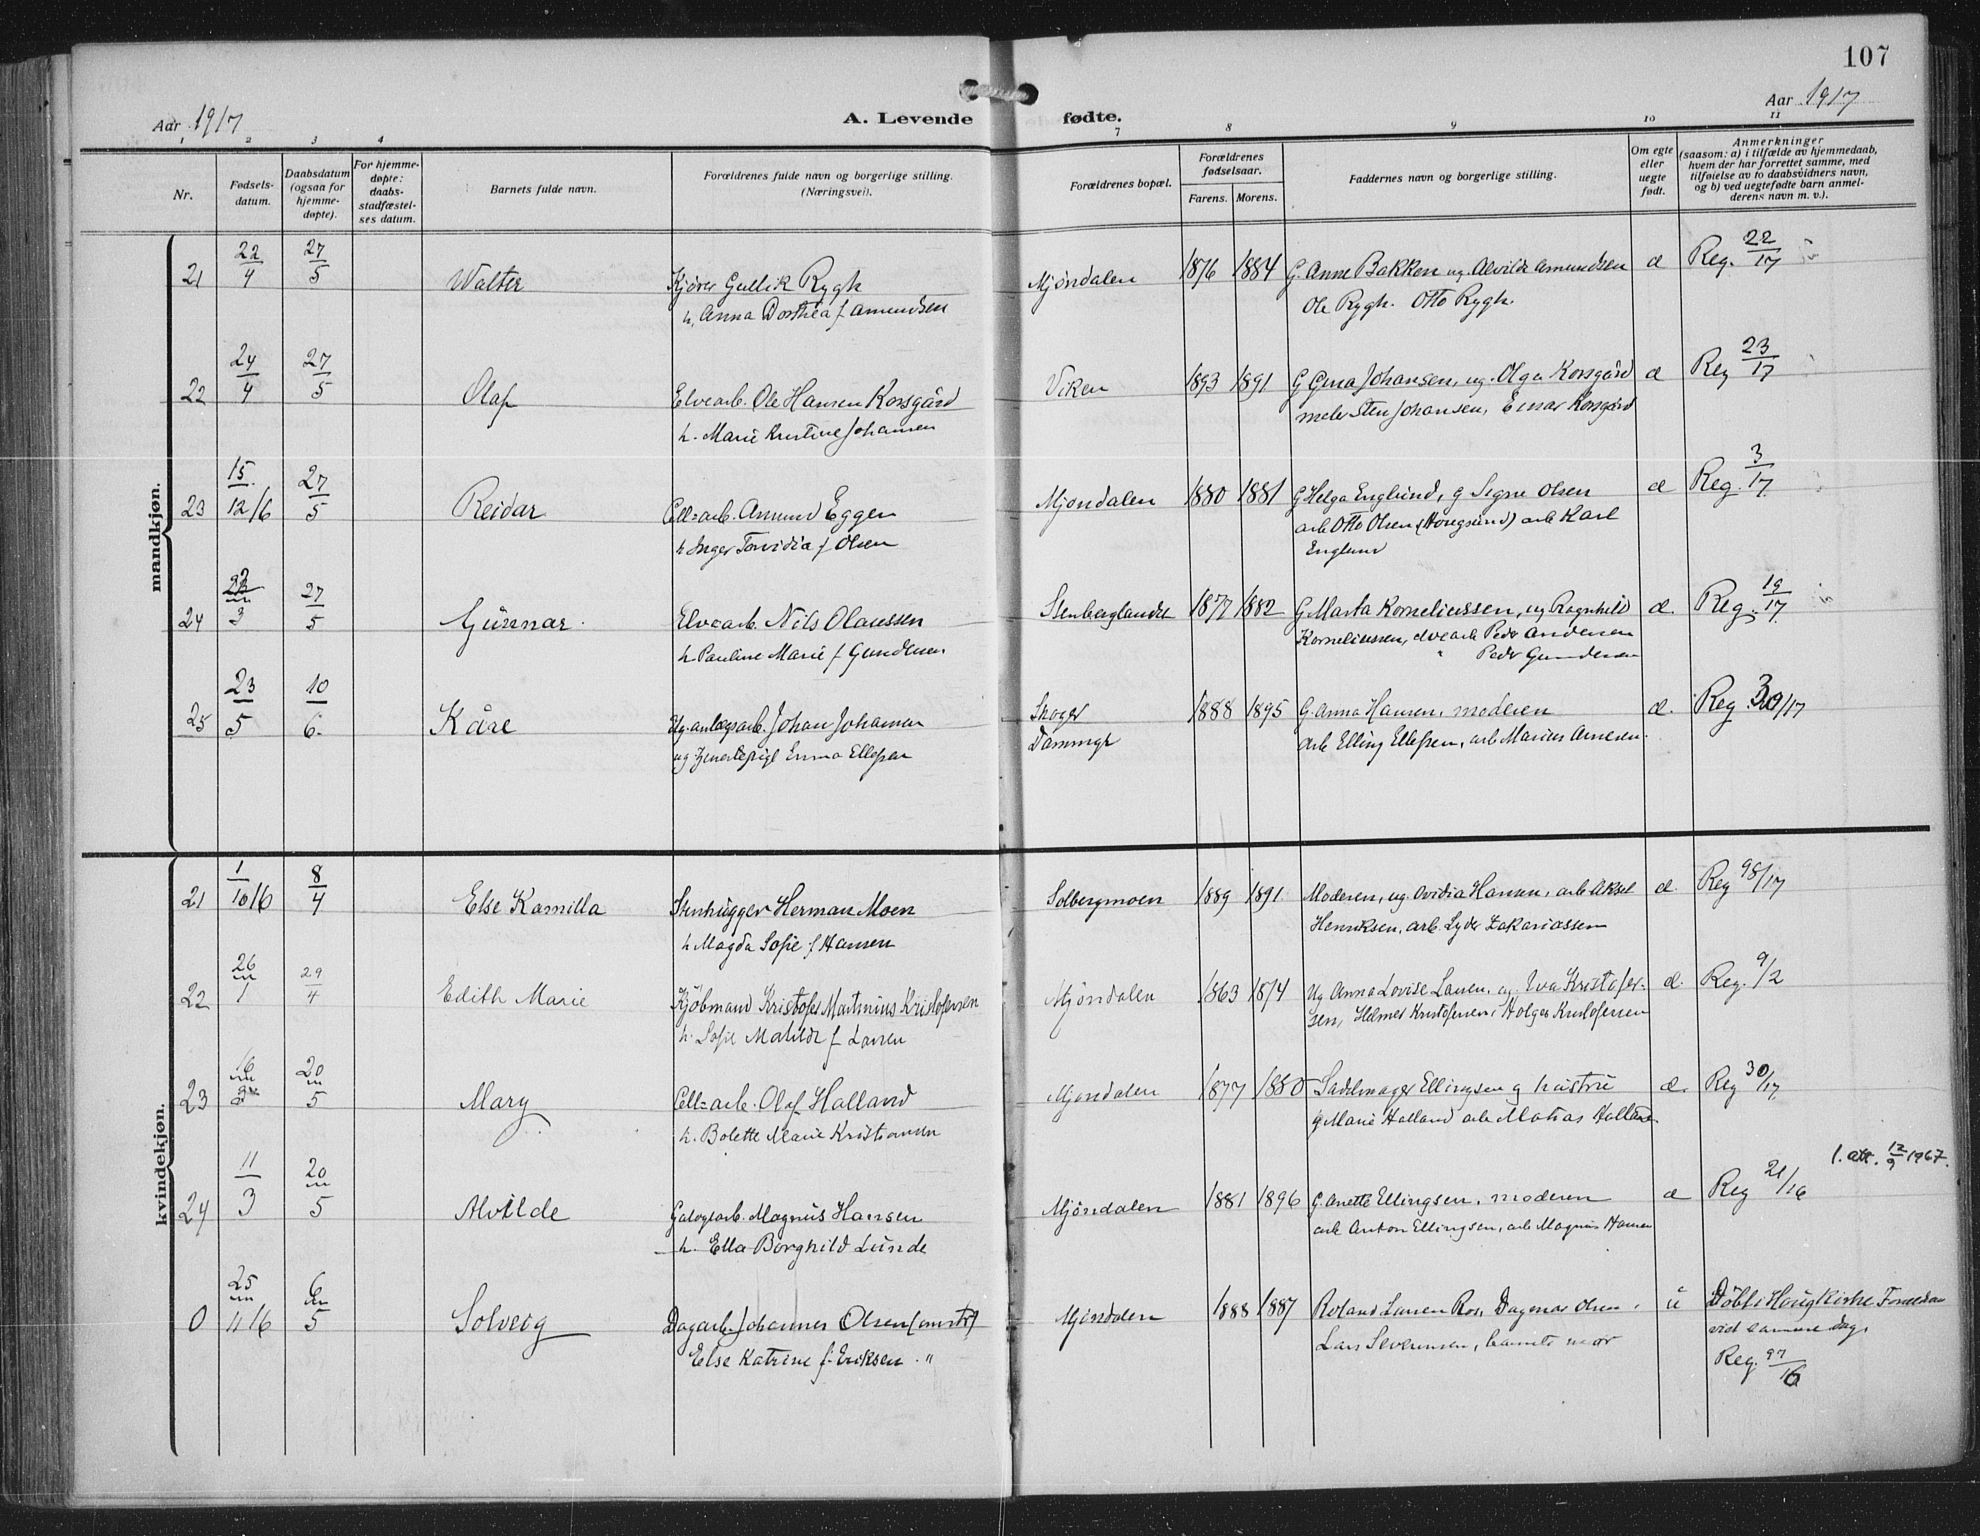 107
Aar 1917
A. Levende fødte.
Aar 1917
1 2 3 4 7 8 9 10 11
Nr.
Fødsels-
datum.
Daabsdatum
(ogsaa for
hjemme-
døpte).
For hjemme-
døpte:
daabs-
stadfæstel-
ses datum.
Barnets fulde navn.
Forældrenes fulde navn og borgerlige stilling.
(Næringsvei).
Forældrenes bopæl.
Forældrenes
fødselsaar.
Farens. Morens.
Faddernes navn og borgerlige stilling.
Om egte
eller
uegte
født.
Anmerkninger
(saasom: a) i tilfælde av hjemmedaab,
hvem der har forrettet samme, med
tilføielse av to daabsvidners navn,
og b) ved uegtefødte barn anmel-
derens navn m. v.).
mandkjøn.
21 22/4 27/5 Walter Kjører Gullik Rygh Mjøndalen 1876 1884 G. Anne Bakken ug. Alvilde Amundsen æ Reg. 22/17
h. Anna Dorthea f Amundsen Ole Rygh. Otto Rygh.
22 24/4 27/5 Olaf Elvearb. Ole Hansen Korsgård Viken 1893 1891 G Gina Johansen, ug. Olga Korsgård æ Reg 23/17
h. Marie Kristine Johansen maler Sten Johansen, Einar Korsgård
23 15/12/6 27/5 Reidar Cell=arb. Amund Egger Mjøndalen 1880 1881 G Helga Englund, g Signe Olsen æ Reg. 3/17
h Inger Torvidia f Olsen arb Otto Olsen (Hougsund) arb Karl
Englund
24 22/3 27/5 Gunnar Elvearb. Nils Olaussen Stenberglandet 1877 1882 G Marta Korneliussen, ug Ragnhild æ. Reg. 19/17
h Pauline Marie f Gundersen Korneliussen, elvearb Peder Andersen
" Peder Gundersen
25 23/5 10/6 Kåre Johan Johansen Skoger 1888 1895 G. Anna Hansen, moderen æ. Reg. 39/17
ug Emma Ellefsen Dammyr arb Elling Ellefsen, arb Marius Arnesen.
kvindekjøn.
21 1/10/6 8/4 Else Kamilla Stenhugger Herman Moen Solbergmoen 1889 1891 Moderen, ug. Ovidia Hansen, arb Aksel æ. Reg 98/17
h Magda Sofie f Hansen Henriksen, arb. Lyder Zakariassen
22 26/1 29/4 Edith Marie Kjøbmand Kristofer Martinius Kristofersen Mjøndalen 1863 1874 Ug Anna Lovise Larsen, ug. Eva Kristofer- æ. Reg. 9/2
h. Sofie Matilde f Larsen sen, Helmer Kristofersen, Holger Kristofersen
23 16 20/5 Mary Cell=arb. Olaf Halland Mjøndalen 1877 1880 Sadelmager Ellingsen g hustru æ. Reg 30/17
h. Bolette Marie Kristiansen g Marie Halland arb Matias Halland
1. att. 12/9 1967.
24 11/3 20/5 Alvilde Galogearb. Magnus Hansen Mjøndalen 1881 1896 G. Anette Ellingsen, moderen æ Reg 21/16
h. Ella Borghild Lunde arb Anton Ellingsen, arb Magnus Hansen
0 25/11/6 6/5 Solveig Dagarb. Johannes Olsen Mjøndalen 1888 1887 Roland Larsen Ros, Dagmar Olsen, u Døbt i Houg Kirke
Else Katrine f. Eriksen " Lars Severinsen, barnets mor vid samme dag.
Reg. 97/16